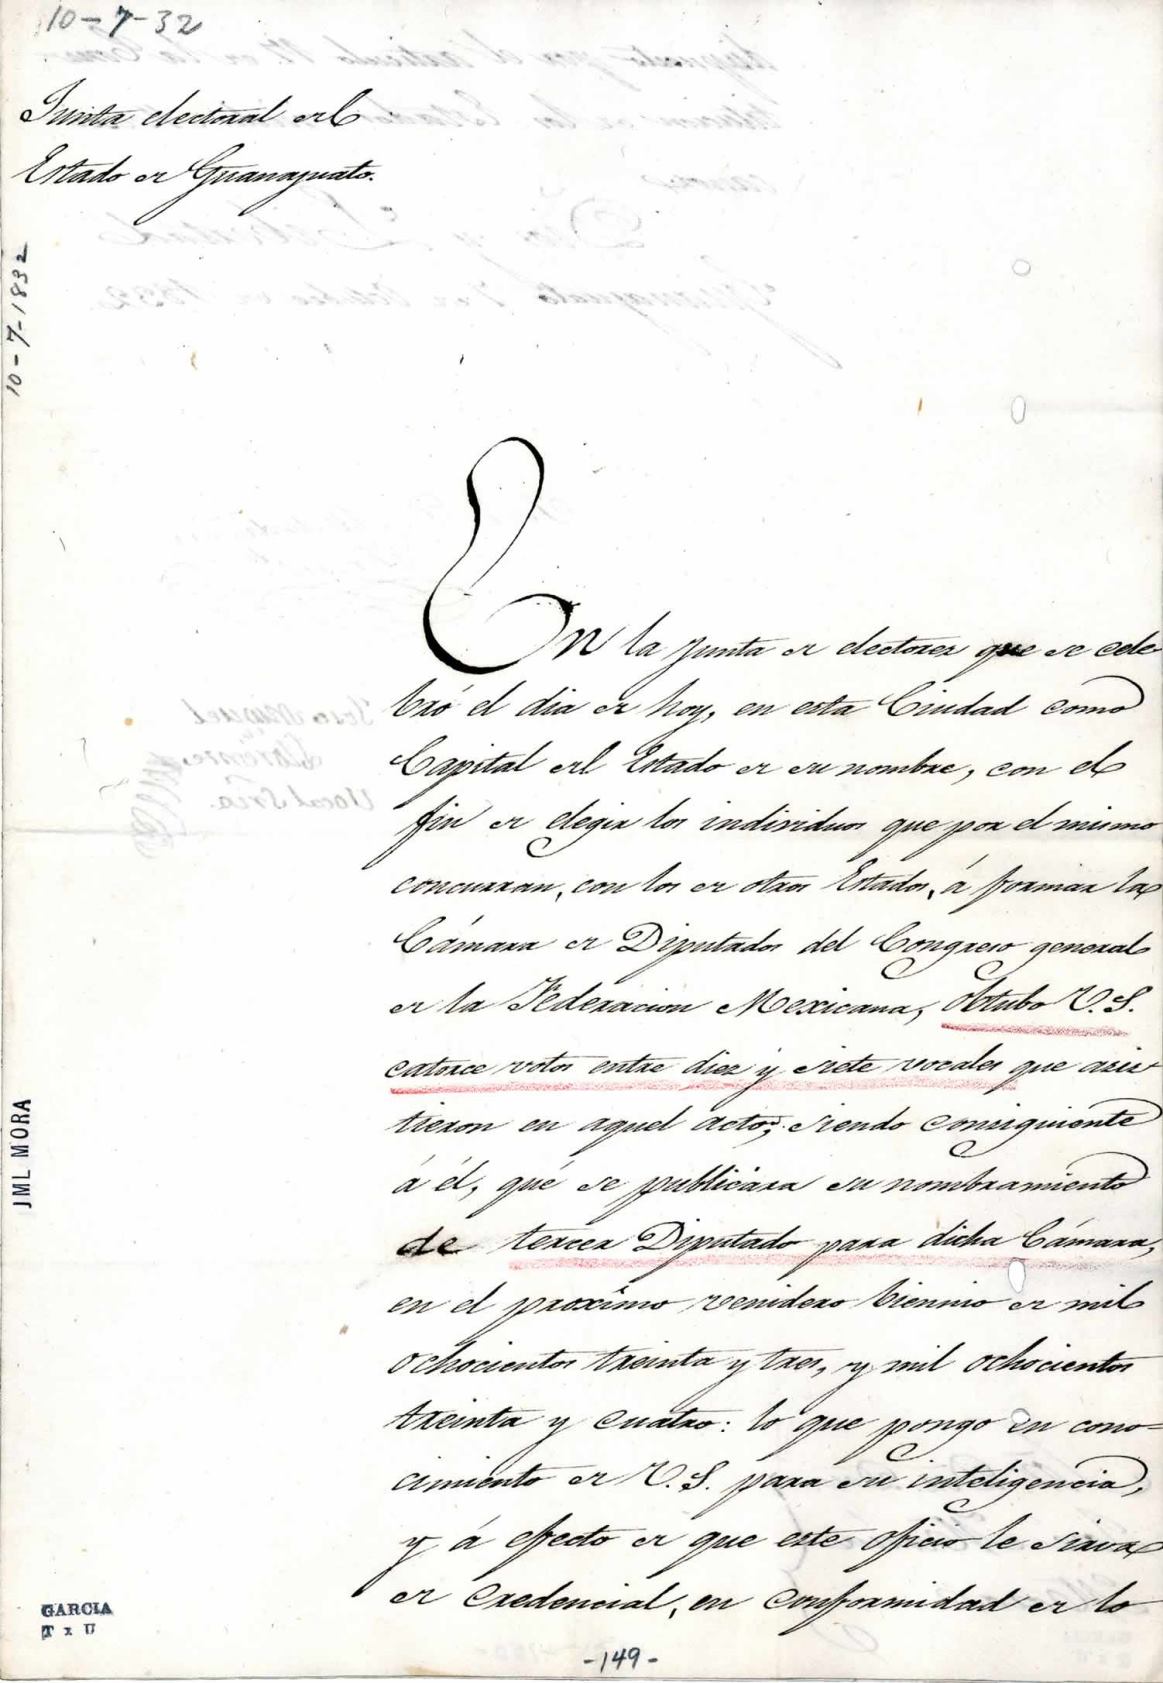 10-7-32
Junta electoral del
Estado de Guanajuato.
10-7-1832
En la junta de electores que se cele-
bró el dia de hoy, en esta Ciudad como
Capital del Estado de su nombre, con el
fin de elegir los individuos que por el mismo
concurran, con los de otros Estados, á formar la
Cámara de Diputados del Congreso general
de la Federacion Mexicana, obtubo V. S.
catorce votos entre diez y siete vocales que asis-
tieron en aquel acto; siendo consiguiente
á él, que se publicára su nombramiento
de tercer Diputado para dicha Cámara,
en el proxîmo venidero bienio de mil
ochocientos treinta y tres, y mil ochocientos
treinta y cuatro: lo que pongo en cono=
cimiento de V. S. para su inteligencia,
y á efecto de que este oficio le sirva
de credencial, en conformidad de lo
JML MORA
GARCIA
T x U
-149-